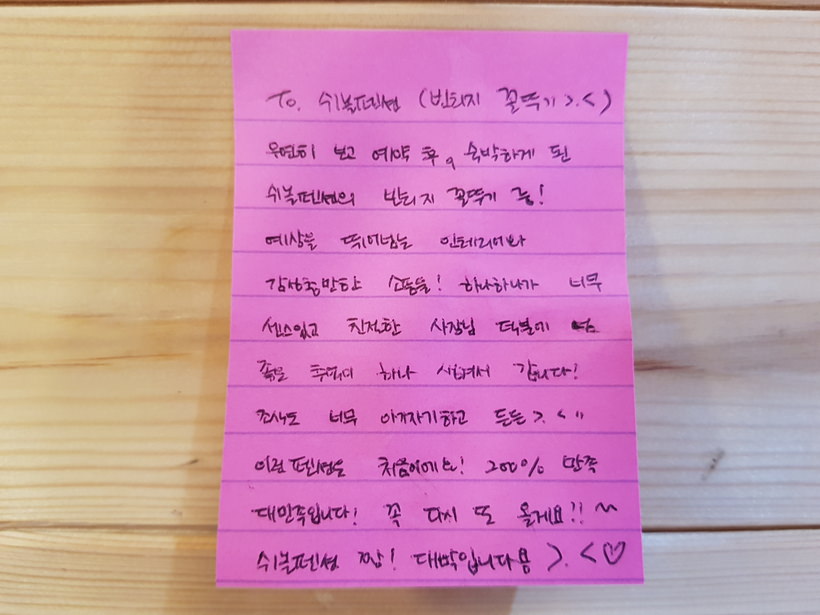 To. 쉬볼펜션 (빈티지 꼴뚜기 >.<)
우연히 보고 예약 후, 숙박하게 된
쉬볼펜션의 빈티지 꼴뚜기 룸!
예상을 뛰어넘는 인테리어와
감성충만한 소품들! 하나하나가 너무
센스있고 친절한 사장님 덕분에
좋은 추억이 하나 새겨서 갑니다!
조식도 너무 아기자기하고 든든 >.< "
이런 펜션은 처음이에요! 200% 만족
대만족입니다! 꼭 다시 또 올게요!! ~
쉬볼펜션 짱! 대박입니다용 >.< ♡